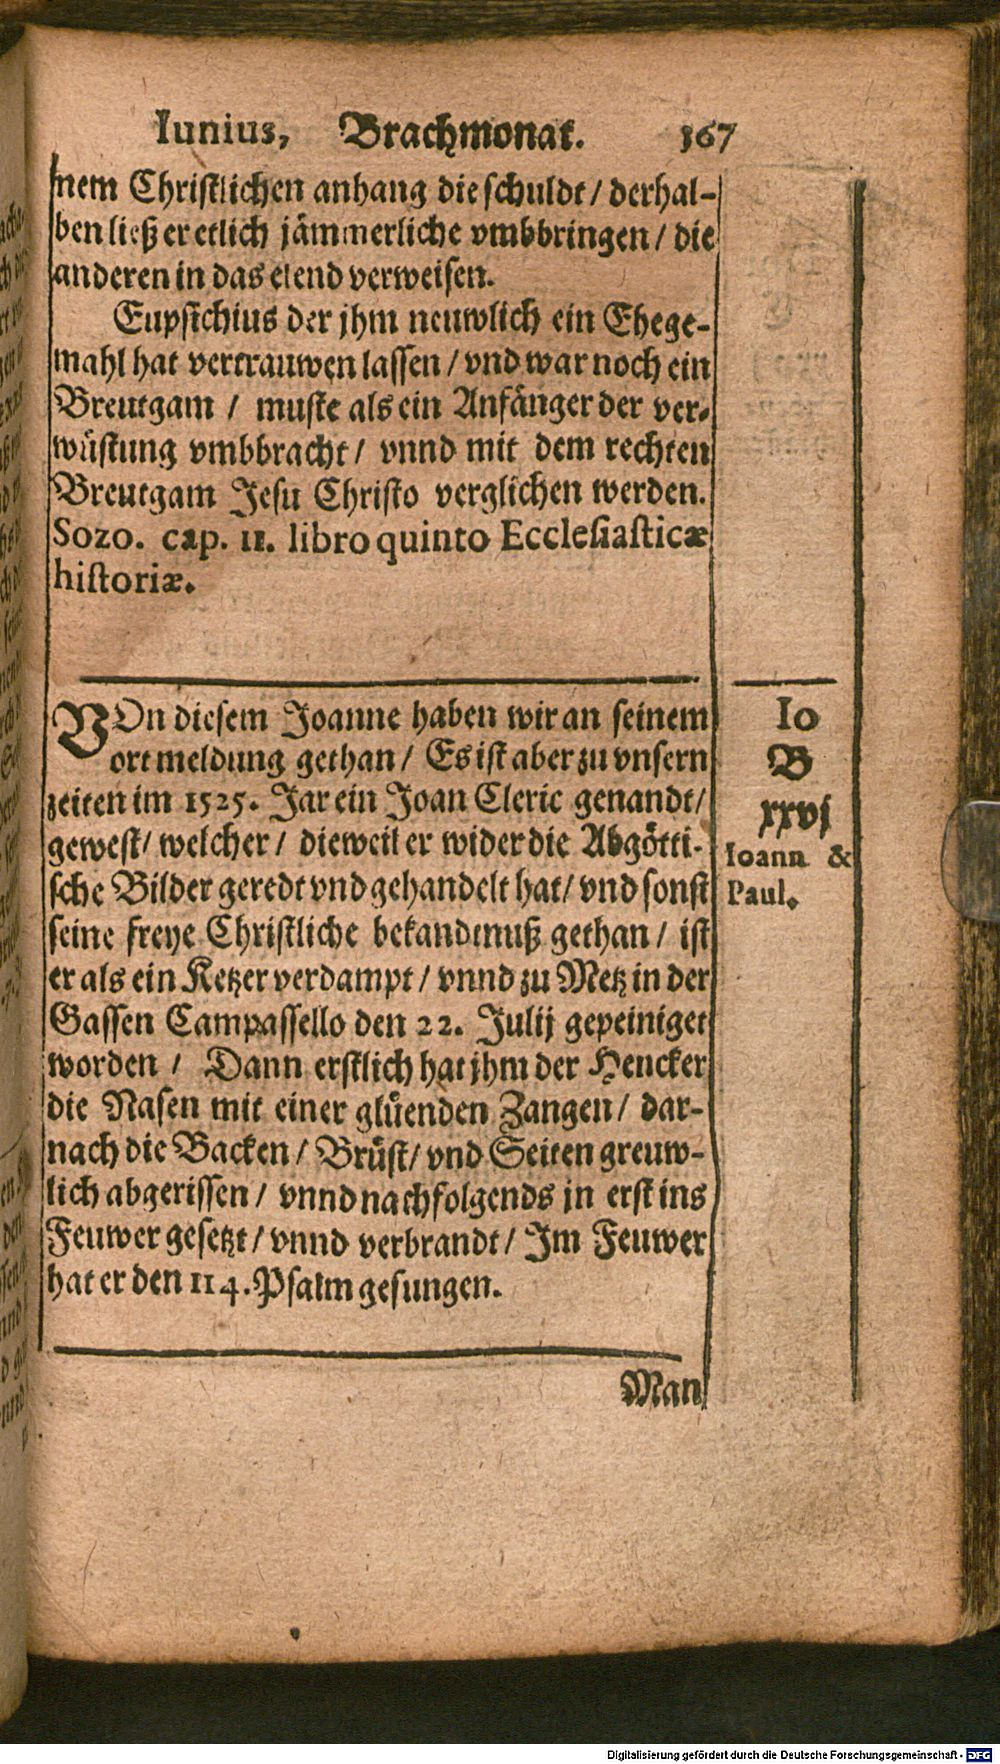 Iunius, Brachmonat. 167
nem Christlichen anhang die schuldt / derhal-
ben ließ er etlich jämmerliche vmbbringen / die
anderen in das elend verweisen.
Eupsichius der jhm neuwlich ein Ehege-
mahl hat vertrauwen lassen / vnd war noch ein
Breutgam / muste als ein Anfänger der ver-
wüstung vmbbracht / vnnd mit dem rechten
Breutgam Jesu Christo verglichen werden.
Sozo. cap. 11. libro quinto Ecclesiasticæ
historiæ.
VOn diesem Joanne haben wir an seinem
ort meldung gethan / Es ist aber zu vnsern
zeiten im 1525. Jar ein Joan Cleric genandt /
gewest / welcher / dieweil er wider die Abgötti-
sche Bilder geredt vnd gehandelt hat / vnd sonst
seine freye Christliche bekandtnuß gethan / ist
er als ein Ketzer verdampt / vnnd zu Metz in der
Gassen Campassello den 22. Julij gepeiniget
worden / Dann erstlich hat jhm der Hencker
die Nasen mit einer glüenden Zangen / dar-
nach die Backen / Brüst / vnd Seiten greuw-
lich abgerissen / vnnd nachfolgends jn erst ins
Feuwer gesetzt / vnnd verbrandt / Im Feuwer
hat er den 114. Psalm gesungen.
Io
B
xxvj
Ioann &
Paul.
Man
Digitalisierung gefördert durch die Deutsche Forschungsgemeinschaft - DFG